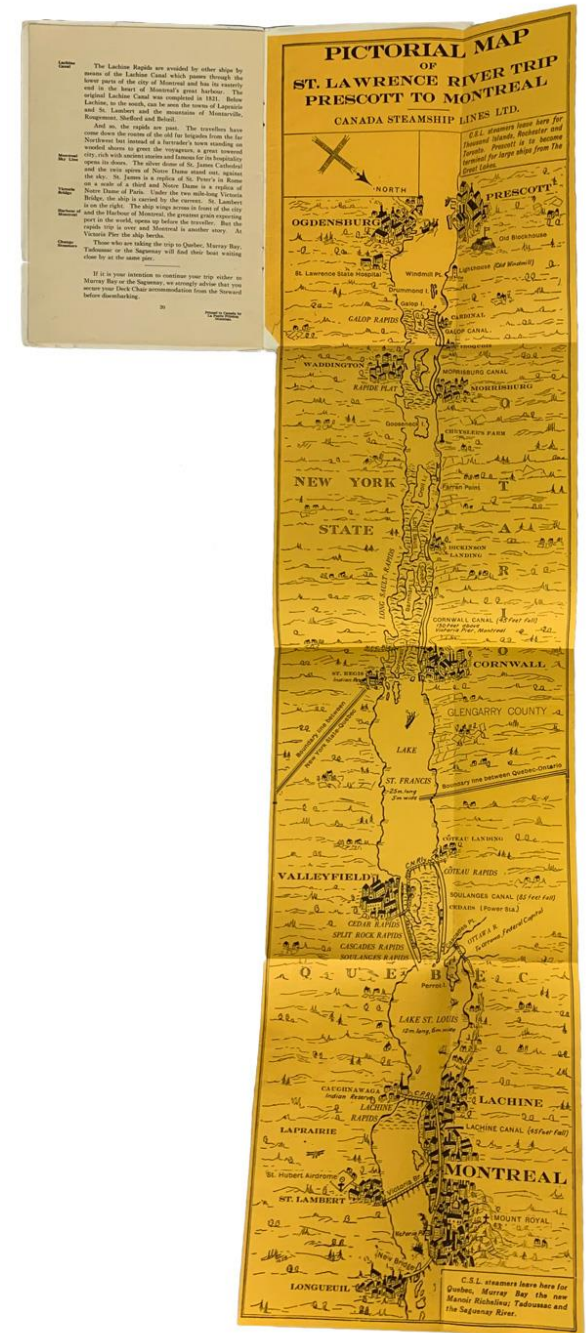 Lachine
Canal
The Lachine Rapids are avoided by other ships by
means of the Lachine Canal which passes through the
lower parts of the city of Montreal and has its easterly
end in the heart of Montreal's great harbour. The
original Lachine Canal was completed in 1821. Below
Lachine, to the south, can be seen the towns of Laprairie
and St. Lambert and the mountains of Montarville,
Rougemont, Shefford and Beloeil.
And so, the rapids are past. The travellers have
come down the routes of the old fur brigades from the far
Northwest but instead of a furtrader's town standing on
wooded shores to greet the voyageurs, a great towered
Montreal
Sky Line
city, rich with ancient stories and famous for its hospitality
opens its doors. The silver dome of St. James Cathedral
and the twin spires of Notre Dame stand out, against
the sky. St. James is a replica of St. Peter's in Rome
on a scale of a third and Notre Dame is a replica of
Victoria
Bridge
Notre Dame of Paris. Under the two mile-long Victoria
Bridge, the ship is carried by the current. St. Lambert
is on the right. The ship wings across in front of the city
Harbour of
Montreal
and the Harbour of Montreal, the greatest grain exporting
port in the world, opens up before the traveller. But the
rapids trip is over and Montreal is another story. At
Victoria Pier the ship berths.
Change
Steamers
Those who are taking the trip to Quebec, Murray Bay,
Tadoussac or the Saguenay will find their boat waiting
close by at the same pier.
If it is your intention to continue your trip either to
Murray Bay or the Saguenay, we strongly advise that you
secure your Deck Chair accommodation from the Steward
before disembarking.
PICTORIAL MAP
OF
ST. LAWRENCE RIVER TRIP
PRESCOTT TO MONTREAL
CANADA STEAMSHIP LINES LTD.
C.S.L. steamers leave here for
Thousand Islands, Rochester and
Toronto. Prescott is to become
terminal for large ships from The
Great Lakes.
NORTH
PRESCOTT
OGDENSBURG
Old Blockhouse
St. Lawrence State Hospital
Windmill Pt.
Lighthouse (Old Windmill)
Drummond I.
Galop I.
GALOP RAPIDS
CARDINAL
GALOP CANAL
WADDINGTON
MORRISBURG CANAL
RAPIDE PLAT
MORRISBURG
Gooseneck I.
CHRYSLER'S FARM
NEW YORK
STATE
Farran Point
DICKINSON
LANDING
LONG SAULT RAPIDS
ONTARIO
CORNWALL CANAL (45 Feet fall)
Victoria Pier, Montreal
ST. REGIS
CORNWALL
Boundary line between
New York State-Quebec
GLENGARRY COUNTY
LAKE
ST. FRANCIS
25m. long
5m wide
Boundary line between Quebec-Ontario
COTEAU LANDING
COTEAU RAPIDS
VALLEYFIELD
SOULANGES CANAL (85 Feet fall)
CEDARS (Power Sta.)
CEDAR RAPIDS
SPLIT ROCK RAPIDS
CASCADES RAPIDS
SOULANGES RAPIDS
OTTAWA R.
To Ottawa, Federal Capital
QUEBEC
Perrot I.
LAKE ST. LOUIS
12m. long, 6m. wide
CAUGHNAWAGA
Indian Reserve
C.P.R.
LACHINE
LACHINE
RAPIDS
LACHINE CANAL (45 Feet Fall)
LAPRAIRIE
MONTREAL
St. Hubert Airdrome
Victoria Br.
ST. LAMBERT
MOUNT ROYAL
New Bridge
LONGUEUIL
C.S.L. steamers leave here for
Quebec, Murray Bay the new
Manoir Richelieu; Tadoussac and
the Saguenay River.